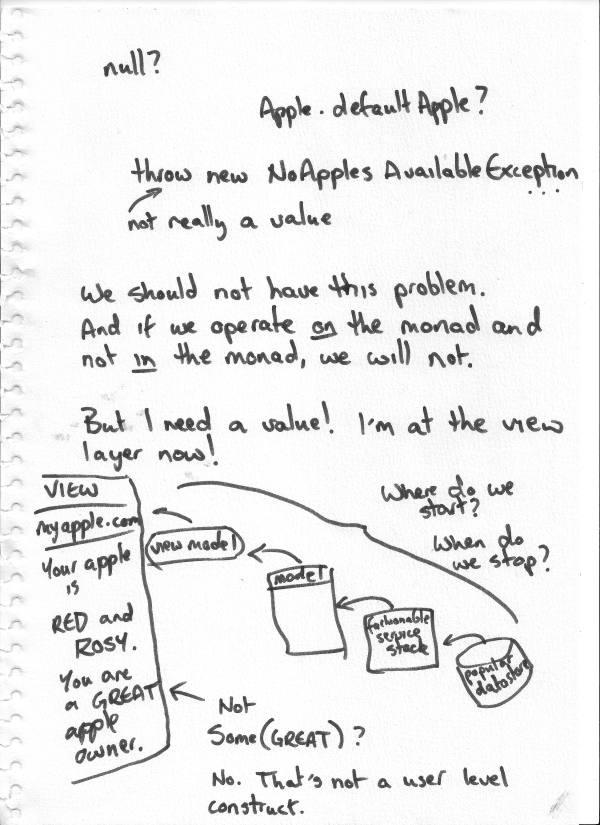 null?
Apple.defaultApple?
throw new NoApplesAvailableException
...
not really a value
We should not have this problem.
And if we operate on the monad and
not in the monad, we will not.
But I need a value! I'm at the view
layer now!
VIEW
myapple.com
Your apple
is
RED and
ROSY.
You are
a GREAT
apple
owner.
view model
model
fashionable
service
stack
popular
datastore
Where do we
start?
When do
we stop?
Not
Some(GREAT)?
No. That's not a user level
construct.